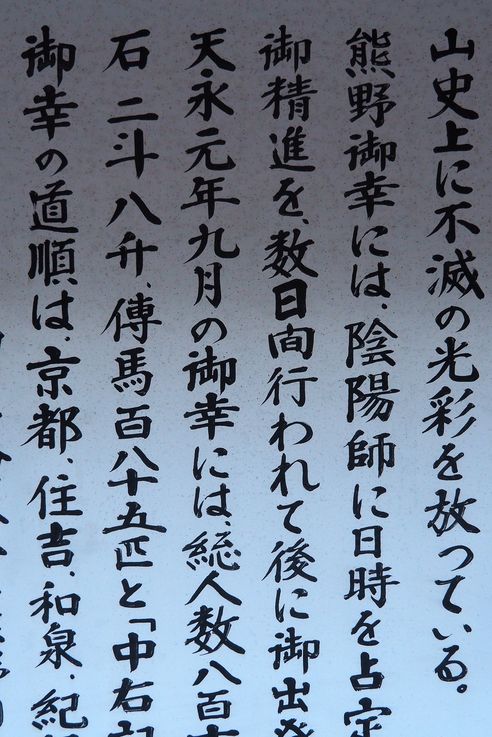 山史上に不滅の光彩を放っている。
熊野御幸には、陰陽師に日時を占定
御精進を、数日間行われて後に御出発
天永元年九月の御幸には、総人数八百
石 二斗八升、傳馬百八十五匹と「中右記
御幸の道順は、京都、住吉、和泉、紀